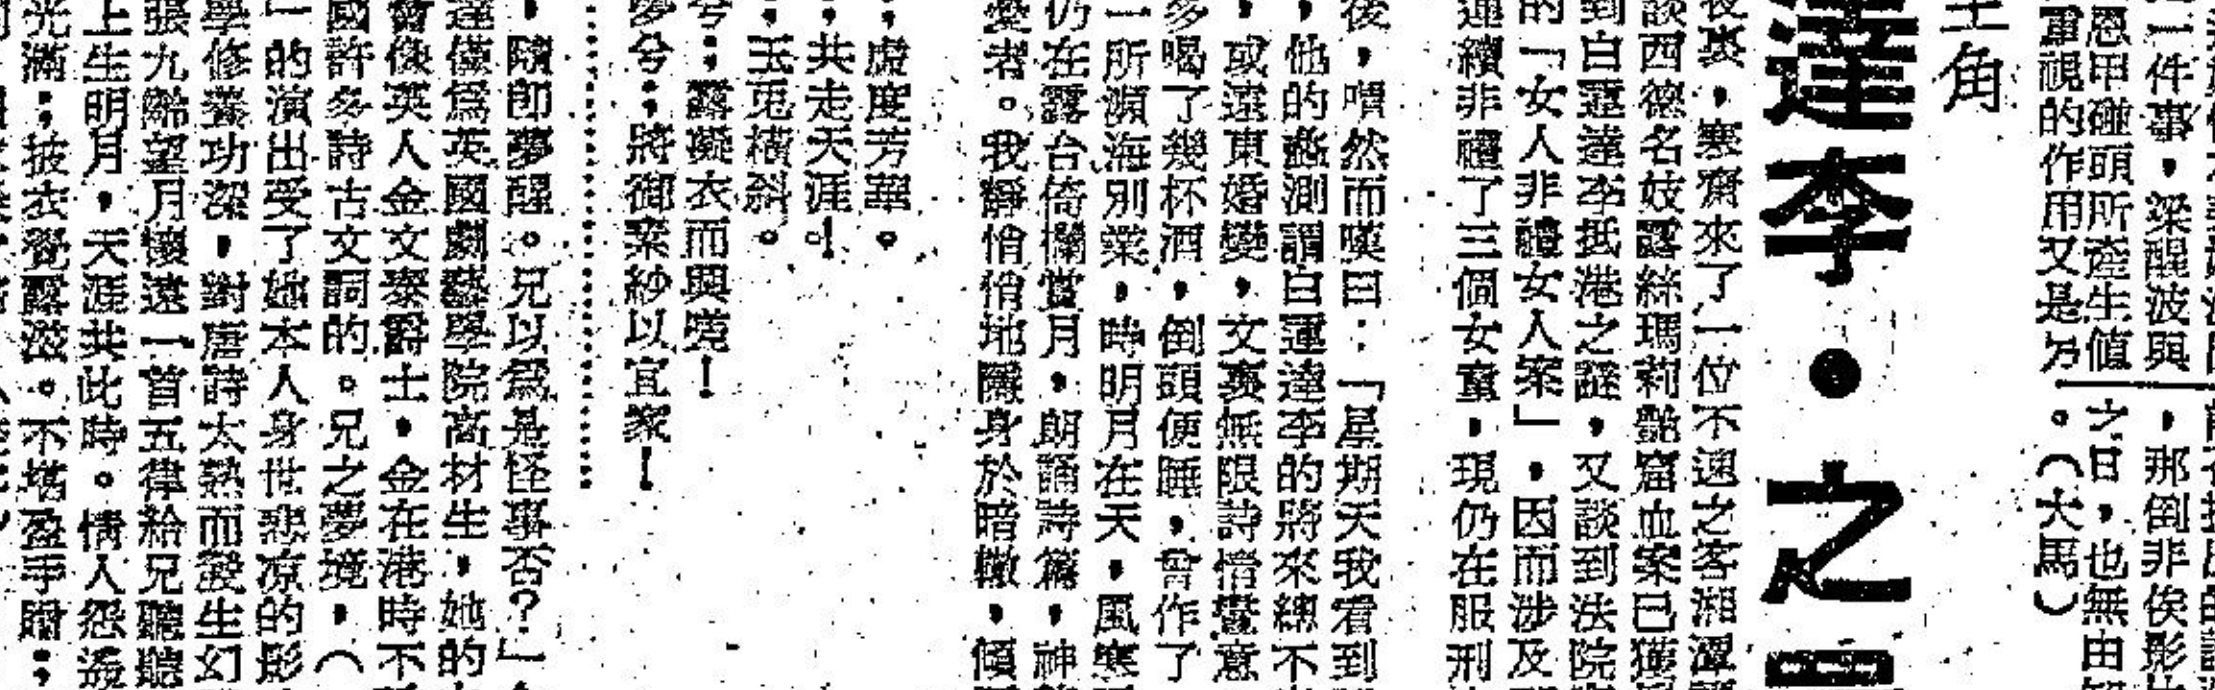 一件事，梁醒波與
恩甲碰頭所產生値
重視的作用又是另
，那倒非俟影
之日，也無由
。（大馬）
主角
達李・之
夜裏，寒齋來了一位不速之客湘潭
談西德名妓露絲瑪莉艷窟血案已獲
到白運達李抵港之謎，又談到法院
的「女人非禮女人案」，因而涉及
連續非禮了三個女童，現仍在服刑
後，喟然而嘆曰：「星期天我看到
，他的蠡測謂白運達李的將來總不
，或遠東婚變，文裏無限詩情蜜意
多喝了幾杯酒，倒頭便睡，曾作了
一所瀕海別業，時明月在天，風寒
仍在露台倚欄賞月，朗誦詩篇，神
憂者。我靜悄悄地隱身於暗轍，傾
；虛度芳華。
；共走天涯！
；玉兎橫斜。
兮；露凝衣而興嗟！
兮；將御翠紗以宜家！
，隨即夢醒。兄以爲是怪事否？」
達僅爲英國劇藝學院高材生，她的
會像英人金文泰爵士，金在港時不
國許多詩古文詞的。兄之夢境，（
」的演出受了她本人身世悲凉的影
學修養功深，對唐詩太熱而發生幻
張九齡望月懷遠一首五律給兄聽聽
上生明月，天涯共此時。情人怨遙
光滿；披衣覺露滋。不堪盈手贈；